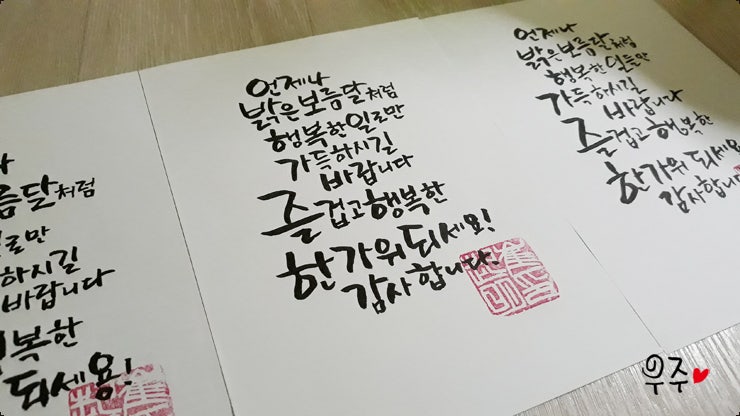 나
름달처럼
로만
하시길
바랍니다
복한
되세요!
언제나
밝은보름달처럼
행복한일로만
가득하시길
바랍니다
즐겁고행복한
한가위되세요!
감사합니다.
언제나
밝은보름달처럼
행복한일들만
가득하시길
바랍니다
즐겁고행복한
한가위되세요
감사합니다
우주